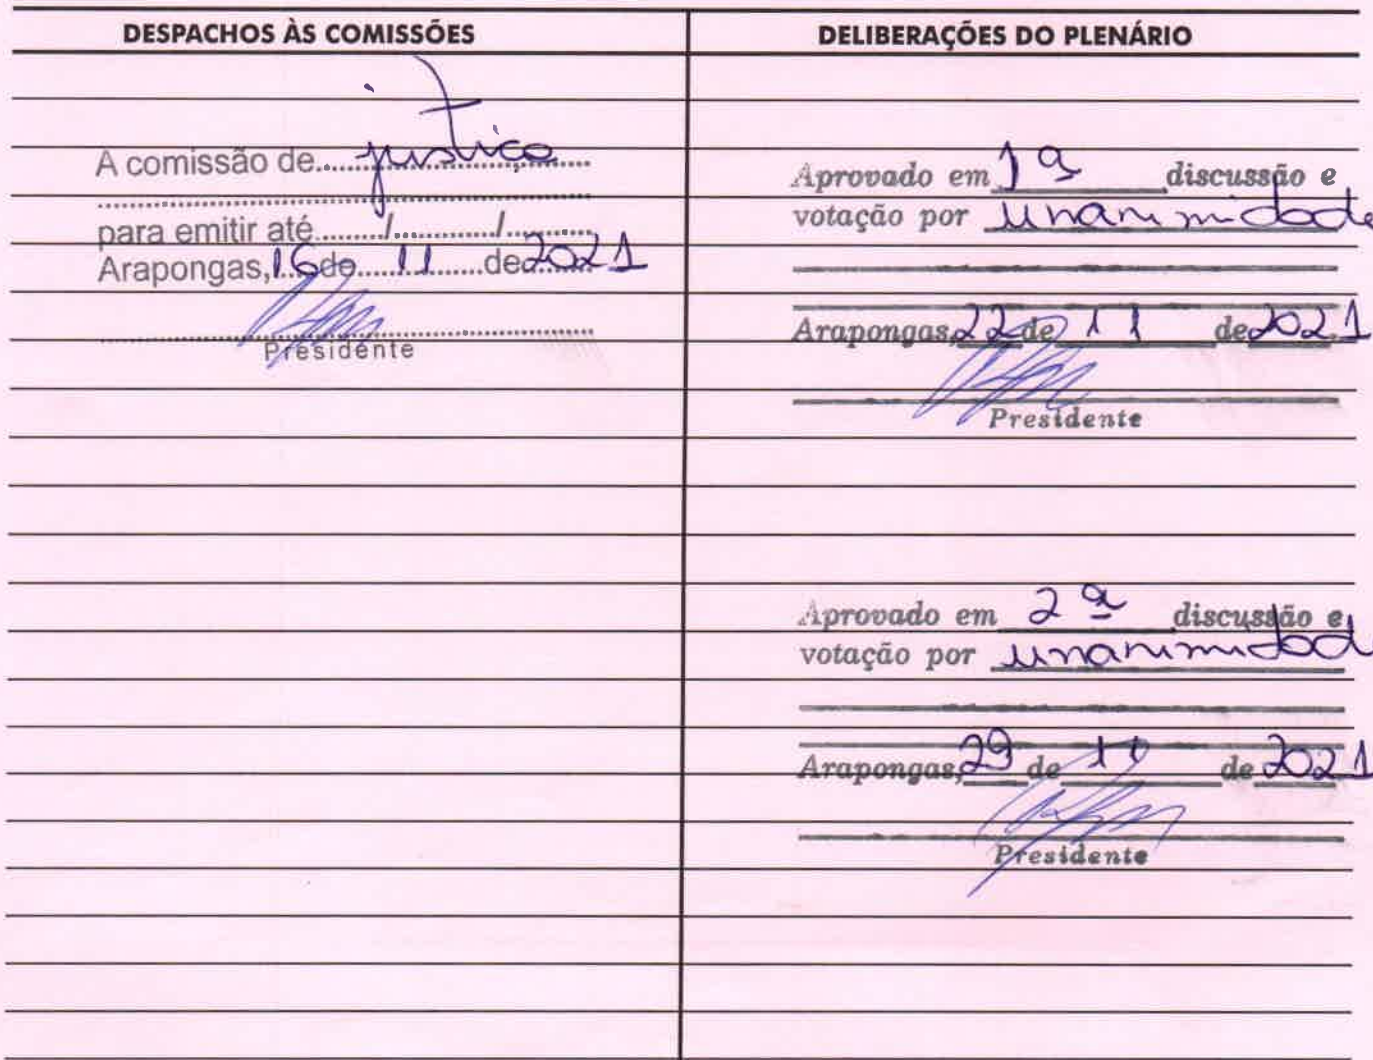 DESPACHOS ÀS COMISSÕES
A comissão de justiça
para emitir até / /
Arapongas, 16 de 11 de 2021
Presidente
DELIBERAÇÕES DO PLENÁRIO
Aprovado em 1ª discussão e
votação por unanimidade
Arapongas, 22 de 11 de 2021
Presidente
Aprovado em 2ª discussão e
votação por unanimidad
Arapongas, 29 de 11 de 2021
Presidente